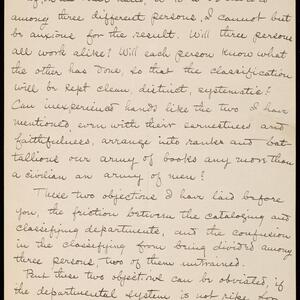 among three different persons, I cannot but
be anxious for the result. Will three persons
all work alike? Will each person know what
the other has done, so that the classification
will be kept clean, distinct, systematic?
Can inexperienced hands like the two I have
mentioned, even with their earnestness and
faithfulness, arrange into ranks and bat-
tallions our army of books any more than
a civilian an army of men?
These two objections I have laid before
you, the friction between the cataloging and
classifying departments, and the confusion
in the classifying from being divided among
three persons two of them untrained.
But these two objections can be obviated, if
the departmental system is not